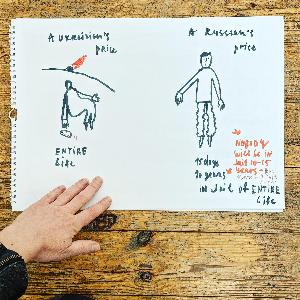 A UKRAINIAN'S
price
ENTIRE
life
A Russian's
price
15 days
10 years
* NOBODY
will be in
Jail 10-15
years
IN Jail of ENTIRE
life